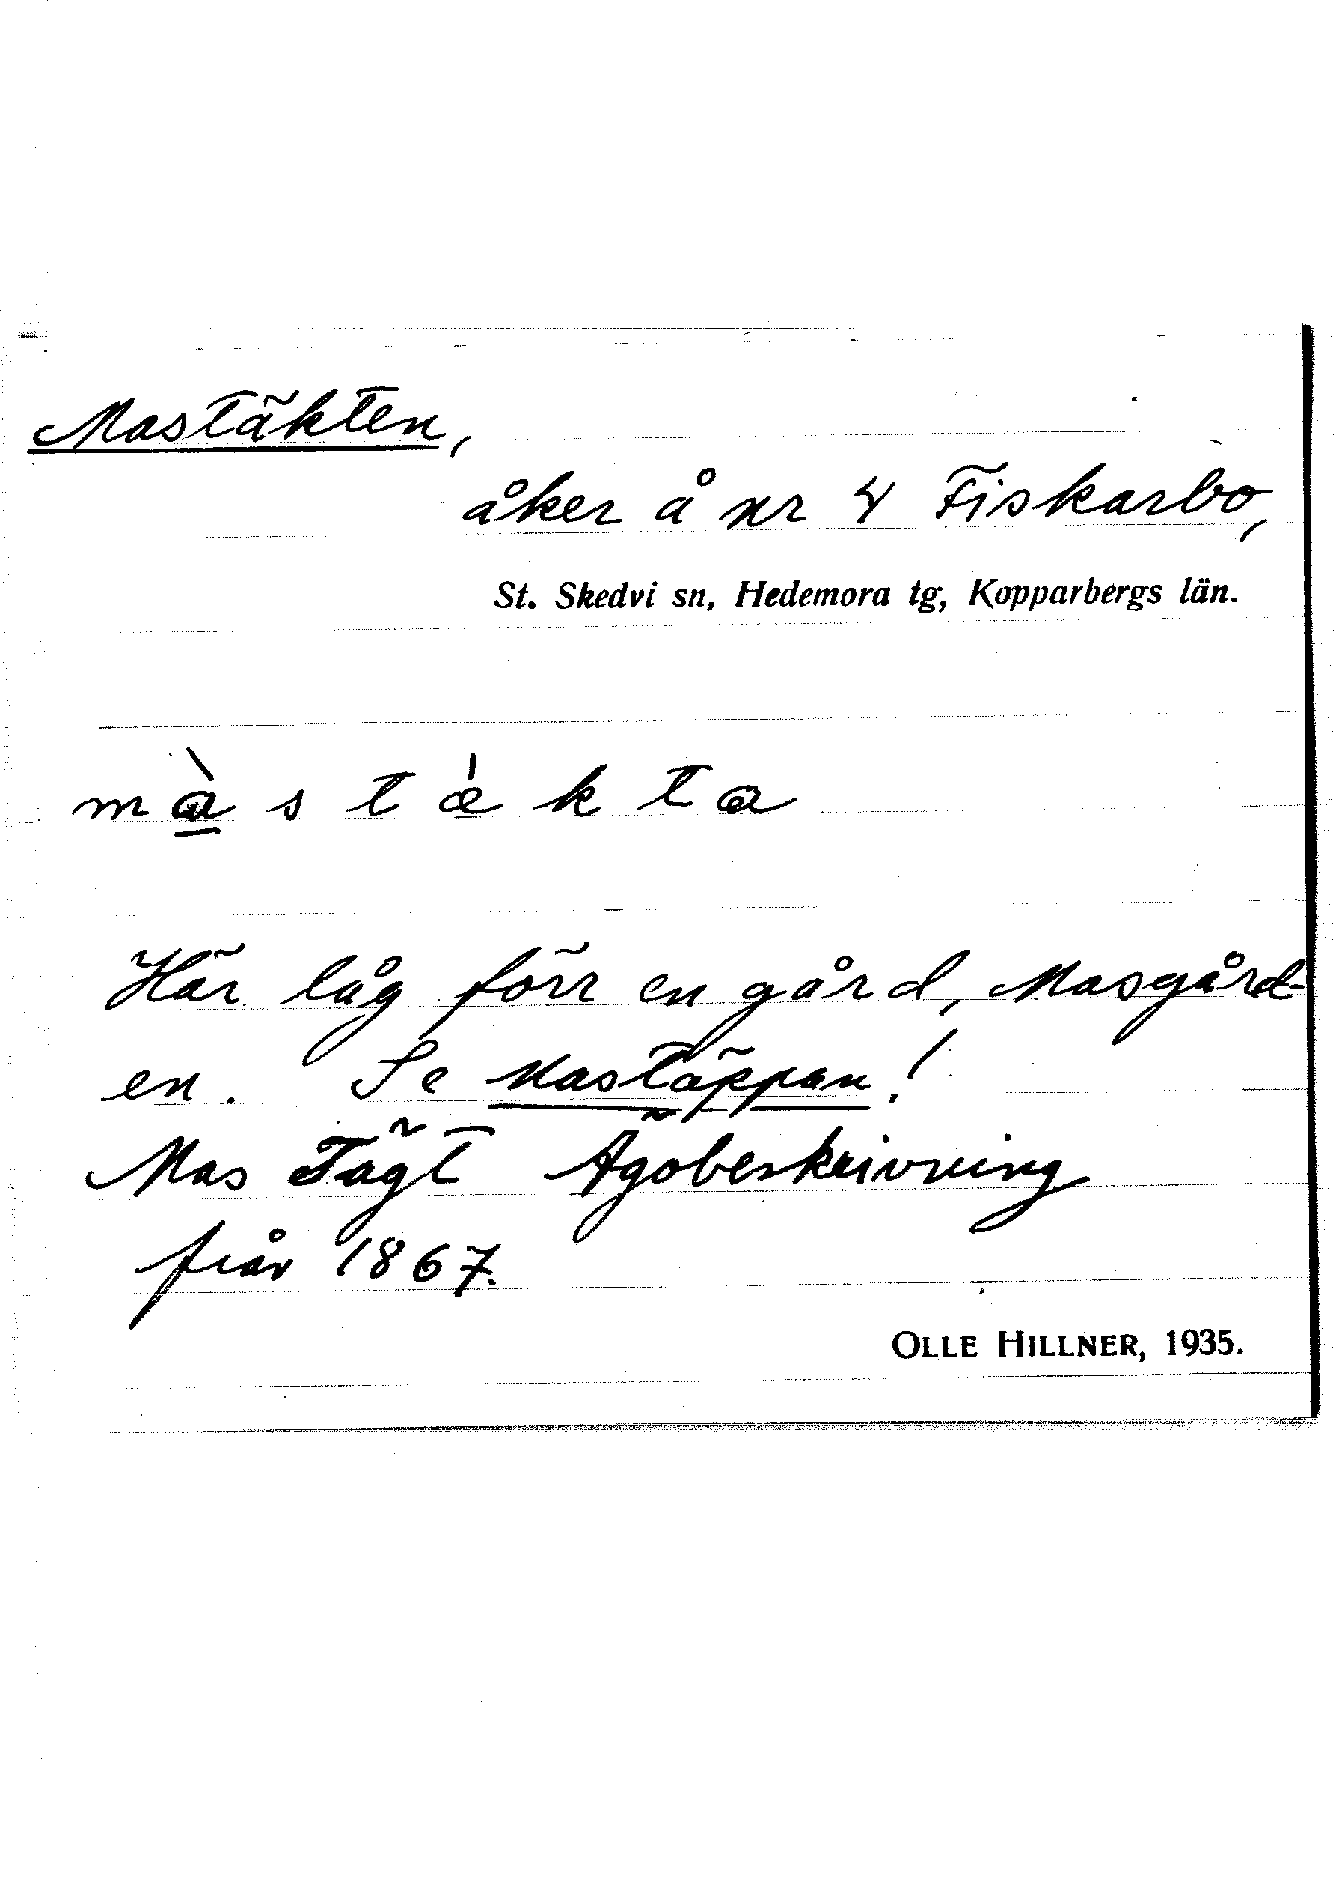 Mastäkten,
åker å nr 4 Fiskarbo,
St. Skedvi sn, Hedemora tg, Kopparbergs län.
mɑ̀s tǽkta
Här låg förr en gård, Masgård-
en. Se Mastäppan!
Mas Tägt Ägobeskrivning
från 1867.
OLLE HILLNER, 1935.